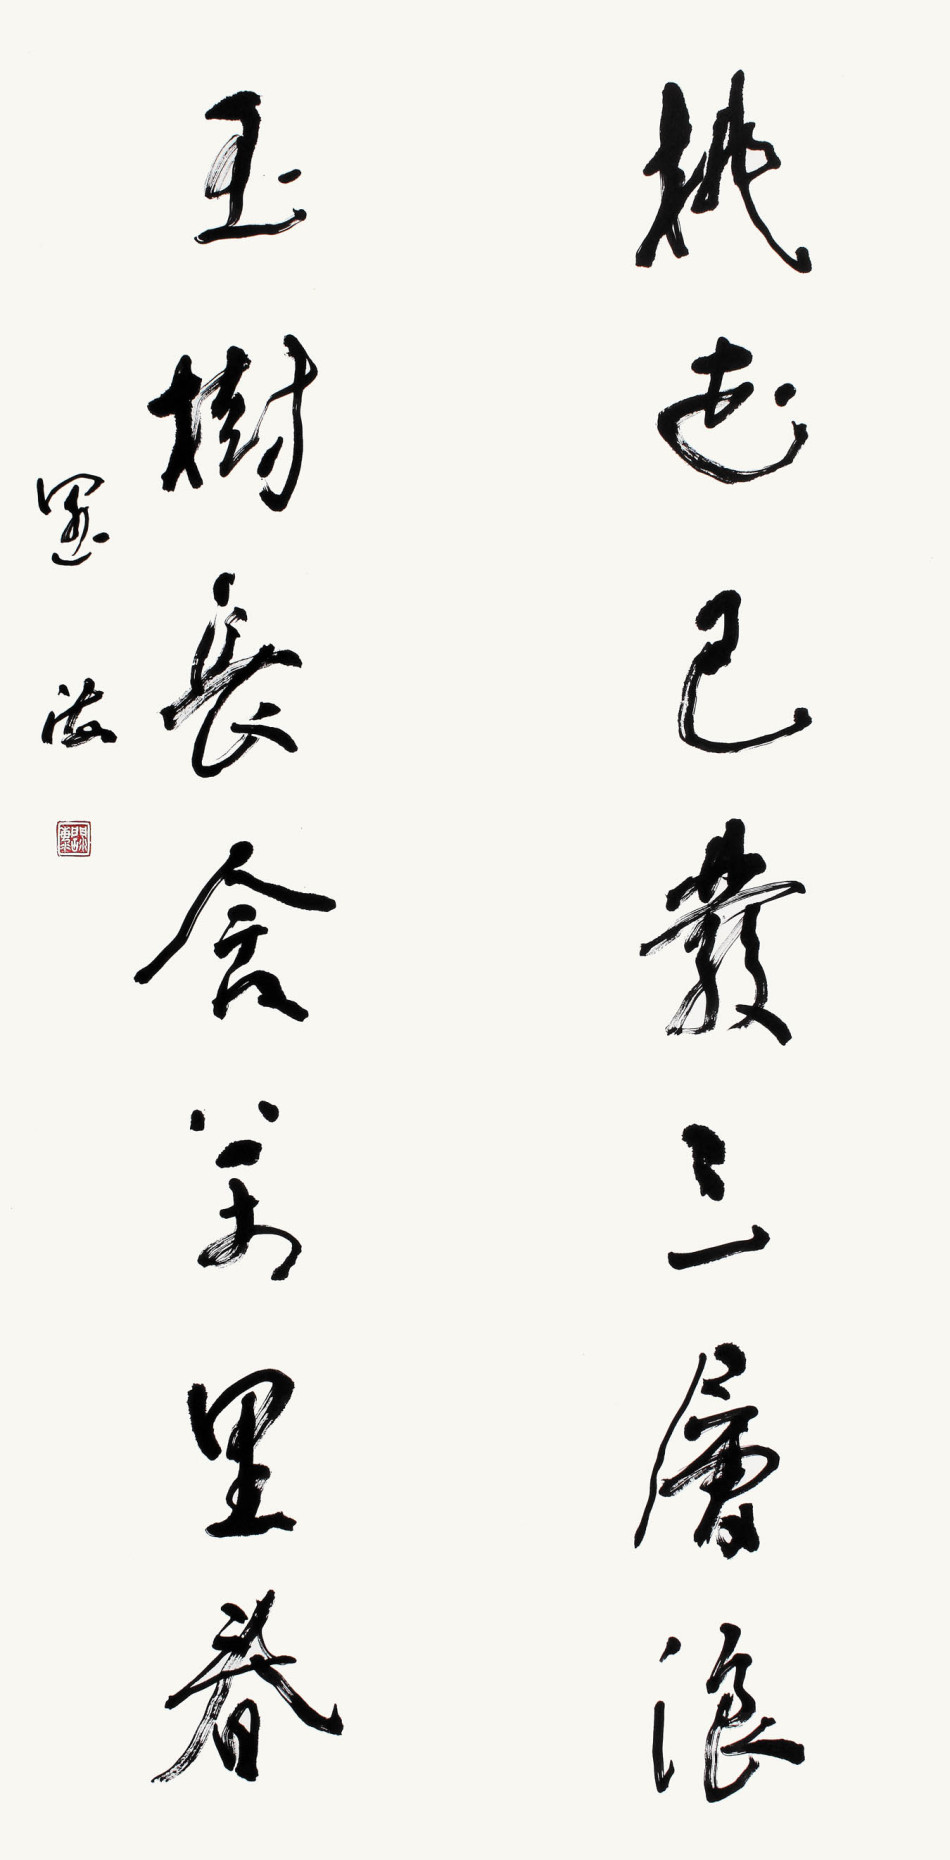 桃花已發三層浪
玉樹長含萬里春
墨海